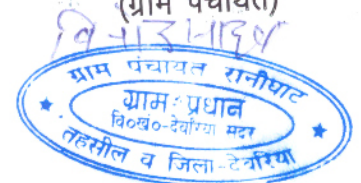 (ग्राम पंचायत)
ग्राम पंचायत रानीघाट
ग्राम प्रधान
वि०ख०-देवरिया सदर
तहसील व जिला-देवरिया